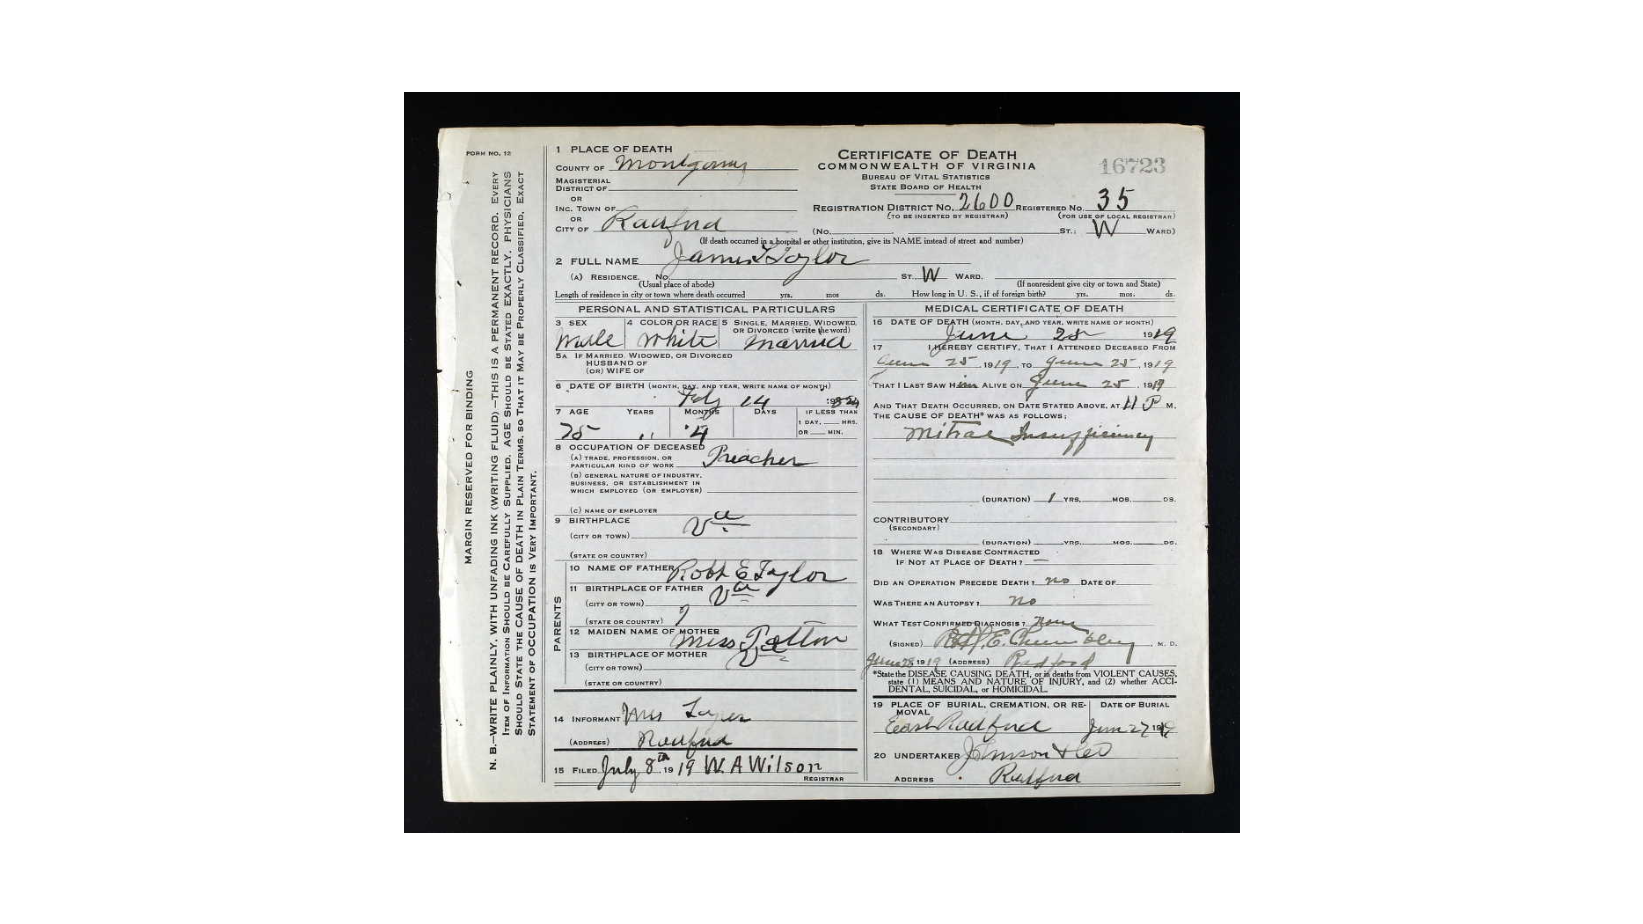 FORM NO. 12
MARGIN RESERVED FOR BINDING
N. B.—WRITE PLAINLY, WITH UNFADING INK (WRITING FLUID)—THIS IS A PERMANENT RECORD. EVERY
ITEM OF INFORMATION SHOULD BE CAREFULLY SUPPLIED. AGE SHOULD BE STATED EXACTLY. PHYSICIANS
SHOULD STATE THE CAUSE OF DEATH IN PLAIN TERMS, SO THAT IT MAY BE PROPERLY CLASSIFIED. EXACT
STATEMENT OF OCCUPATION IS VERY IMPORTANT.
1 PLACE OF DEATH
COUNTY OF Montgomery
MAGISTERIAL
DISTRICT OF
OR
INC. TOWN OF
OR
CITY OF Radford
CERTIFICATE OF DEATH
COMMONWEALTH OF VIRGINIA
BUREAU OF VITAL STATISTICS
STATE BOARD OF HEALTH
16723
REGISTRATION DISTRICT NO. 2600 REGISTERED NO. 35
(TO BE INSERTED BY REGISTRAR) (FOR USE OF LOCAL REGISTRAR)
(NO. ST.; W WARD)
(If death occurred in a hospital or other institution, give its NAME instead of street and number)
2 FULL NAME James Taylor
(A) RESIDENCE. NO. ST. W WARD.
(Usual place of abode) (If nonresident give city or town and State)
Length of residence in city or town where death occurred yrs. mos ds. How long in U. S., if of foreign birth? yrs. mos. ds.
PERSONAL AND STATISTICAL PARTICULARS
3 SEX 4 COLOR OR RACE 5 SINGLE, MARRIED, WIDOWED,
OR DIVORCED (write the word)
Male White Married
5A IF MARRIED, WIDOWED, OR DIVORCED
HUSBAND OF
(OR) WIFE OF
6 DATE OF BIRTH (MONTH, DAY, AND YEAR, WRITE NAME OF MONTH)
Feby 14
7 AGE YEARS MONTHS DAYS IF LESS THAN
1 DAY, HRS.
OR MIN.
75 4
8 OCCUPATION OF DECEASED
(A) TRADE, PROFESSION, OR
PARTICULAR KIND OF WORK Preacher
(B) GENERAL NATURE OF INDUSTRY,
BUSINESS, OR ESTABLISHMENT IN
WHICH EMPLOYED (OR EMPLOYER)
(C) NAME OF EMPLOYER
9 BIRTHPLACE Va
(CITY OR TOWN)
(STATE OR COUNTRY)
PARENTS
10 NAME OF FATHER Robt E Taylor
11 BIRTHPLACE OF FATHER Va
(CITY OR TOWN)
(STATE OR COUNTRY) ?
12 MAIDEN NAME OF MOTHER Miss Patton
13 BIRTHPLACE OF MOTHER Va
(CITY OR TOWN)
(STATE OR COUNTRY)
14 INFORMANT Mrs
(ADDRESS) Radford
15 FILED July 8th 1919 W. A Wilson
REGISTRAR
MEDICAL CERTIFICATE OF DEATH
16 DATE OF DEATH (MONTH, DAY, AND YEAR, WRITE NAME OF MONTH)
June 25 1919
17 I HEREBY CERTIFY, THAT I ATTENDED DECEASED FROM
June 25, 1919 TO June 25, 1919
THAT I LAST SAW Him ALIVE ON June 25, 1919
AND THAT DEATH OCCURRED, ON DATE STATED ABOVE, AT 11 P M.
THE CAUSE OF DEATH* WAS AS FOLLOWS:
Mitral Insufficiency
(DURATION) 1 YRS. MOS. DS.
CONTRIBUTORY
(SECONDARY)
(DURATION) YRS. MOS. DS.
18 WHERE WAS DISEASE CONTRACTED
IF NOT AT PLACE OF DEATH?
DID AN OPERATION PRECEDE DEATH? no DATE OF
WAS THERE AN AUTOPSY? No
WHAT TEST CONFIRMED DIAGNOSIS? None
(SIGNED) M. D.
1919 (ADDRESS) Radford
*State the DISEASE CAUSING DEATH, or in deaths from VIOLENT CAUSES,
state (1) MEANS AND NATURE OF INJURY, and (2) whether ACCI-
DENTAL, SUICIDAL, or HOMICIDAL.
19 PLACE OF BURIAL, CREMATION, OR RE- DATE OF BURIAL
MOVAL
East Radford Jun 27 1919
20 UNDERTAKER Johnson &
ADDRESS Radford